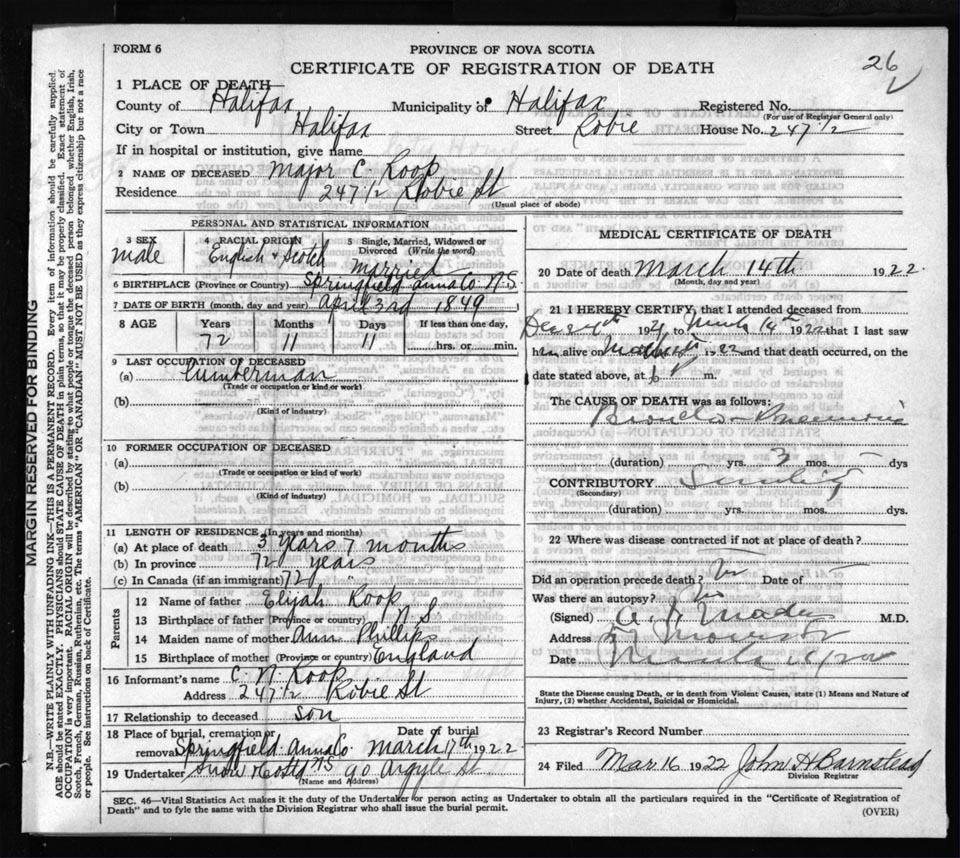 FORM 6
PROVINCE OF NOVA SCOTIA
CERTIFICATE OF REGISTRATION OF DEATH
26
1 PLACE OF DEATH
County of Halifax Municipality of Halifax Registered No.
(For use of Registrar General only)
City or Town Halifax Street Robie House No. 247 1/2
If in hospital or institution, give name
2 NAME OF DECEASED Major C. Roop
Residence 247 1/2 Robie St
(Usual place of abode)
PERSONAL AND STATISTICAL INFORMATION
3 SEX 4 RACIAL ORIGIN 5 Single, Married, Widowed or Divorced (Write the word)
male English & Scotch married
6 BIRTHPLACE (Province or Country) Springfield Anna Co. N.S.
7 DATE OF BIRTH (month, day and year) April 3rd 1849
8 AGE Years Months Days If less than one day,
72 11 11 hrs. or min.
9 LAST OCCUPATION OF DECEASED
(a) Lumberman
(Trade or occupation or kind or work)
(b)
(Kind of industry)
10 FORMER OCCUPATION OF DECEASED
(a)
(Trade or occupation or kind of work)
(b)
(Kind of industry)
11 LENGTH OF RESIDENCE (In years and months)
(a) At place of death 3 years 7 months
(b) In province 72 years
(c) In Canada (if an immigrant) 72 "
Parents
12 Name of father Elijah Roop
13 Birthplace of father (Province or country) N S
14 Maiden name of mother Ann Phillips
15 Birthplace of mother (Province or country) England
16 Informant's name C. N. Roop
Address 247 1/2 Robie St
17 Relationship to deceased son
18 Place of burial, cremation or removal Springfield Anna Co. N S Date of burial March 17th 1922
19 Undertaker Snow & Co Ltd 90 Argyle St
(Name and Address)
MEDICAL CERTIFICATE OF DEATH
20 Date of death March 14th 1922.
(Month, day and year)
21 I HEREBY CERTIFY, that I attended deceased from
Dec 192 to March 14th 1922 that I last saw
h alive on 1922 and that death occurred, on the
date stated above, at m.
The CAUSE OF DEATH was as follows:
Broncho Pneumonia
(duration) yrs. 3 mos. dys
CONTRIBUTORY Senility
(Secondary)
(duration) yrs. mos. dys.
22 Where was disease contracted if not at place of death?
Did an operation precede death? No Date of
Was there an autopsy? No
(Signed) M.D.
Address
Date
State the Disease causing Death, or in death from Violent Causes, state (1) Means and Nature of
Injury, (2) whether Accidental, Suicidal or Homicidal.
23 Registrar's Record Number
24 Filed Mar. 16 1922 John H Barnstead
Division Registrar
SEC. 46—Vital Statistics Act makes it the duty of the Undertaker or person acting as Undertaker to obtain all the particulars required in the "Certificate of Registration of
Death" and to fyle the same with the Division Registrar who shall issue the burial permit.
(OVER)
MARGIN RESERVED FOR BINDING
N.B.—WRITE PLAINLY WITH UNFADING INK—THIS IS A PERMANENT RECORD. Every item of information should be carefully supplied.
AGE should be stated EXACTLY. PHYSICIANS should STATE CAUSE OF DEATH in plain terms, so that it may be properly classified. Exact statement of
OCCUPATION is very important. RACIAL ORIGIN will be described by stating to what people or tongue the deceased person belonged whether English, Irish,
Scotch, French, German, Russian, Ruthenian, etc. The terms "AMERICAN" OR "CANADIAN" MUST NOT BE USED as they express citizenship but not a race
or people. See instructions on back of Certificate.